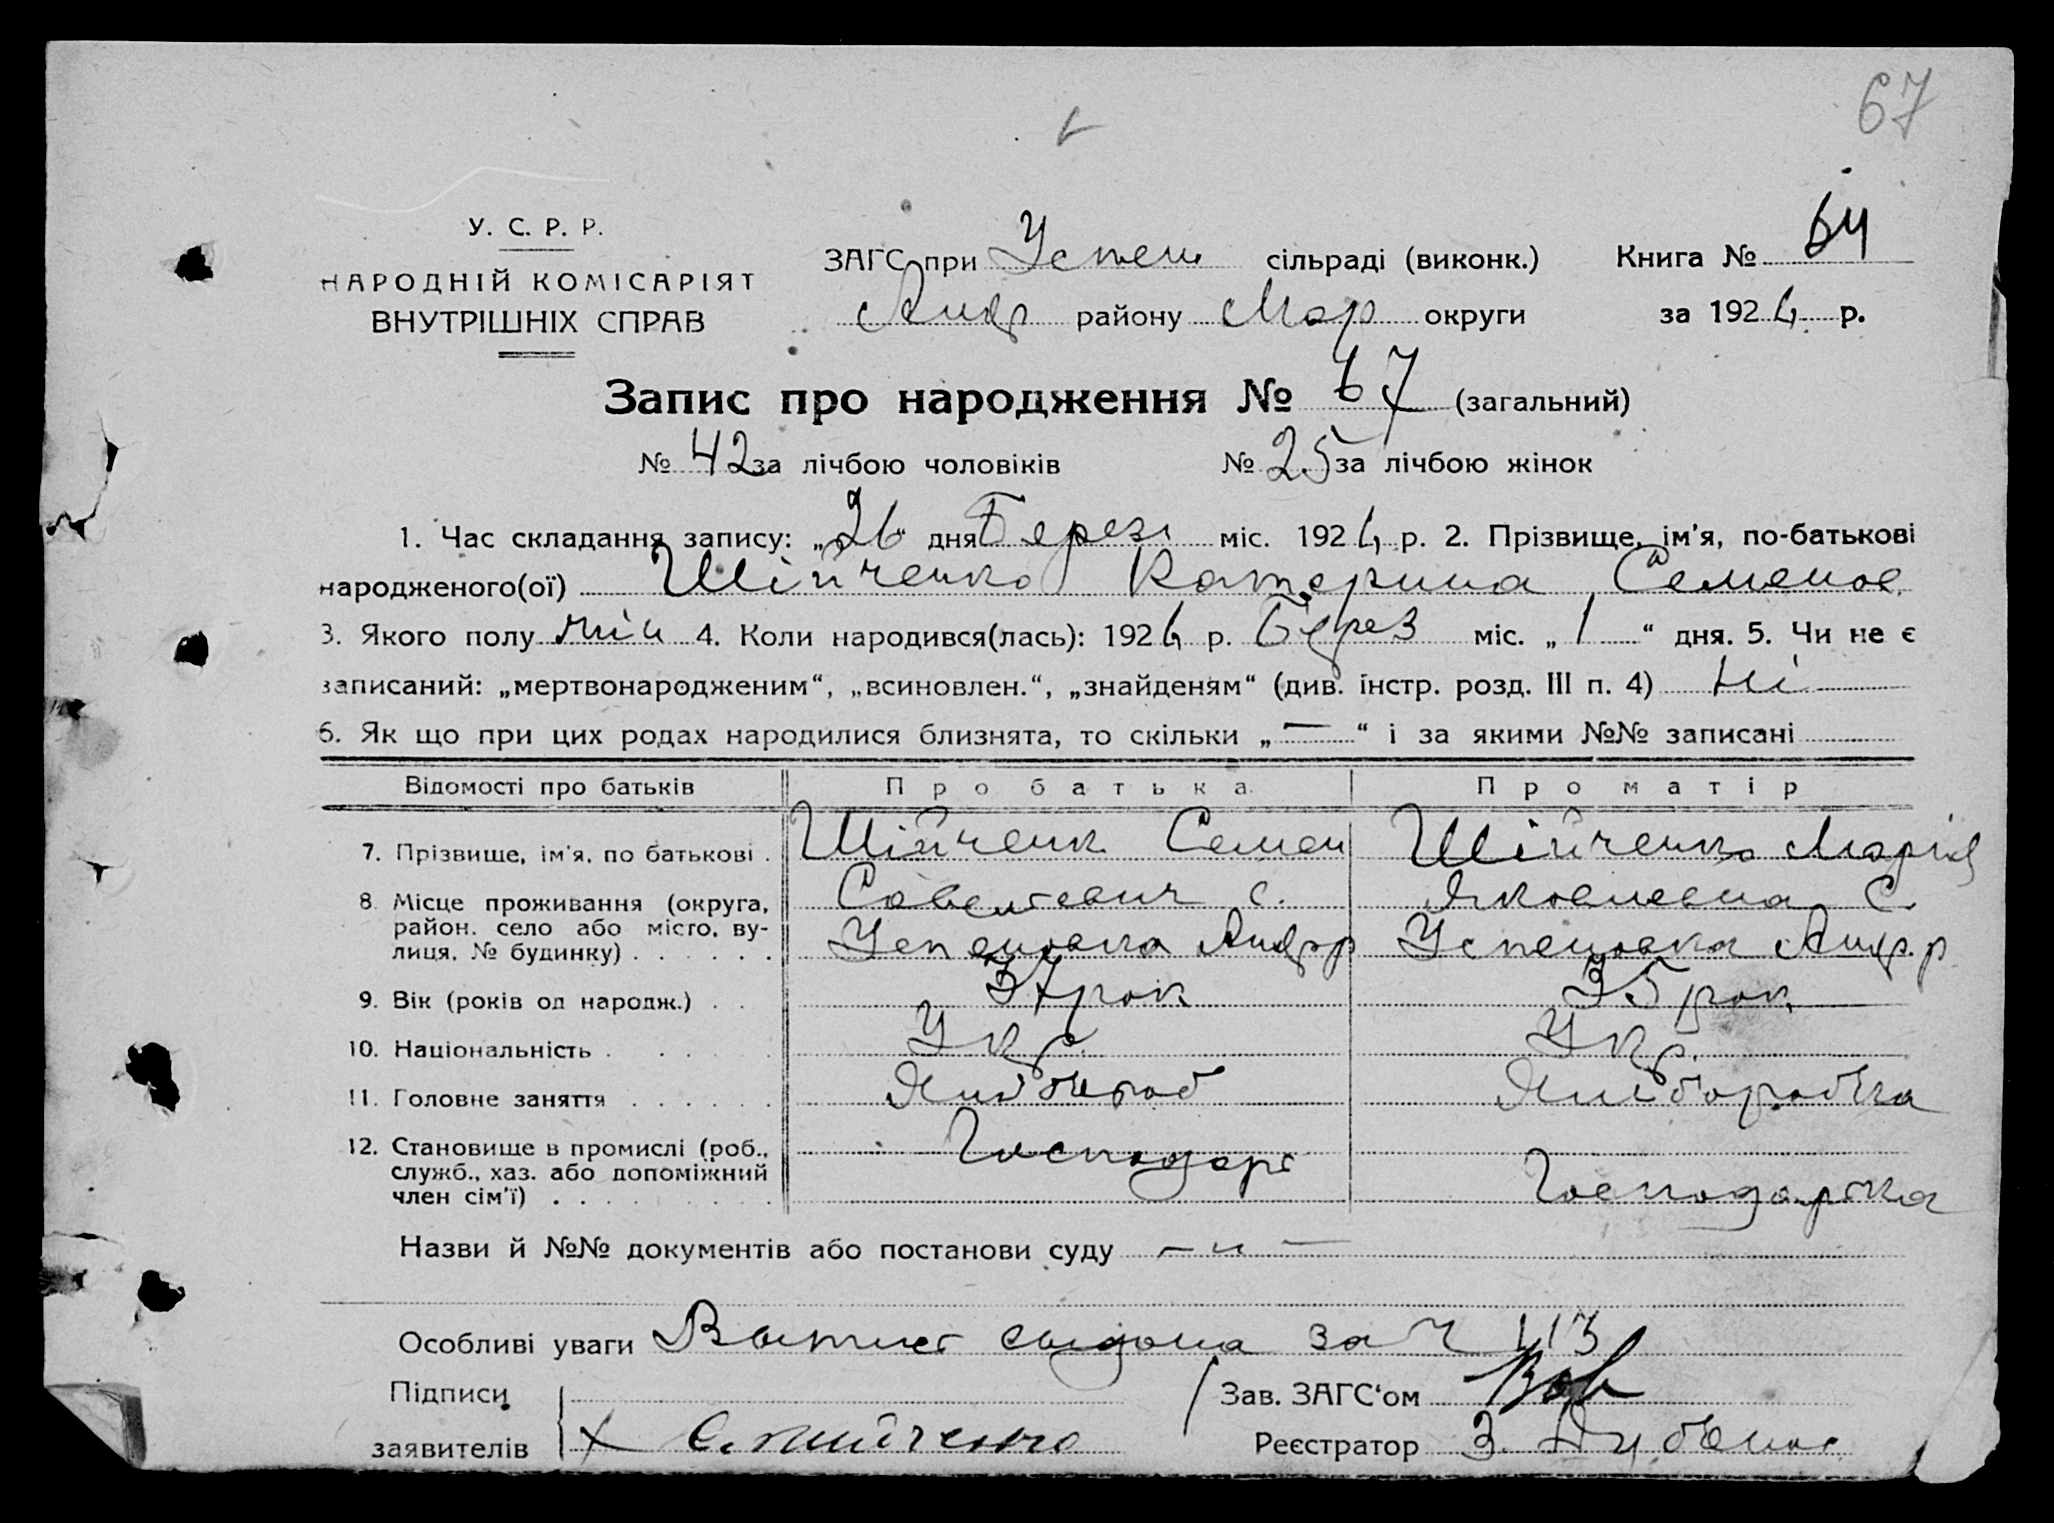 67
У. С. Р. Р.
НАРОДНІЙ КОМІСАРІЯТ
ВНУТРІШНІХ СПРАВ
ЗАГС при Успен сільраді (виконк.) Книга № 64
Андр району Мар округи за 1926 р.
Запис про народження № 67 (загальний)
№ 42 за лічбою чоловіків № 25 за лічбою жінок
1. Час складання запису: „26“ дня Березн міс. 1926 р. 2. Прізвище, ім'я, по-батькові
народженого(ої) Шійченко Катерина Семенов.
3. Якого полу жін 4. Коли народився(лась): 1926 р. Берез міс. „1“ дня. 5. Чи не є
записаний: „мертвонародженим“, „всиновлен.“, „знайденям“ (див. інстр. розд. III п. 4) Ні
6. Як що при цих родах народилися близнята, то скільки „—“ і за якими №№ записані
Відомості про батьків Про батька Про матір
7. Прізвище, ім'я, по батькові . Шійченк Семен Шійченко Марія
8. Місце проживання (округа, Савелєевич с. Яковлевна С.
район, село або місто, ву- Успеновка Андр р Успеновка Андр. р
лиця, № будинку) . . . . . .
9. Вік (років од народж.) . . 37 рок 35 рок
10. Національність . . . . . Укр. Укр.
11. Головне заняття . . . . . . Хлібороб Хліборобка
12. Становище в промислі (роб., Господарь
служб., хаз. або допоміжний
член сім'ї) . . . . . . . . . Господарька
Назви й №№ документів або постанови суду — " —
Особливі уваги Витяг видана за Ч 113
Підписи Зав. ЗАГС'ом
заявителів Х С. Шийченко Реєстратор З. Дубенос